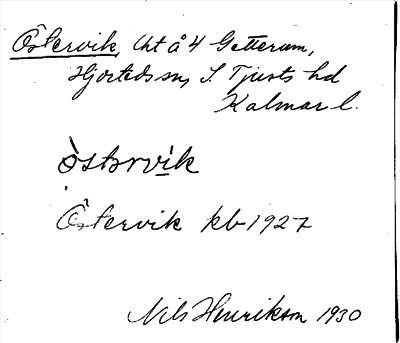 Östervik, Uht å 4 Getterum,
Hjorteds sn, S. Tjusts hd
Kalmar l.
òstərvik
Östervik kb 1927
Nils Henrikson 1930